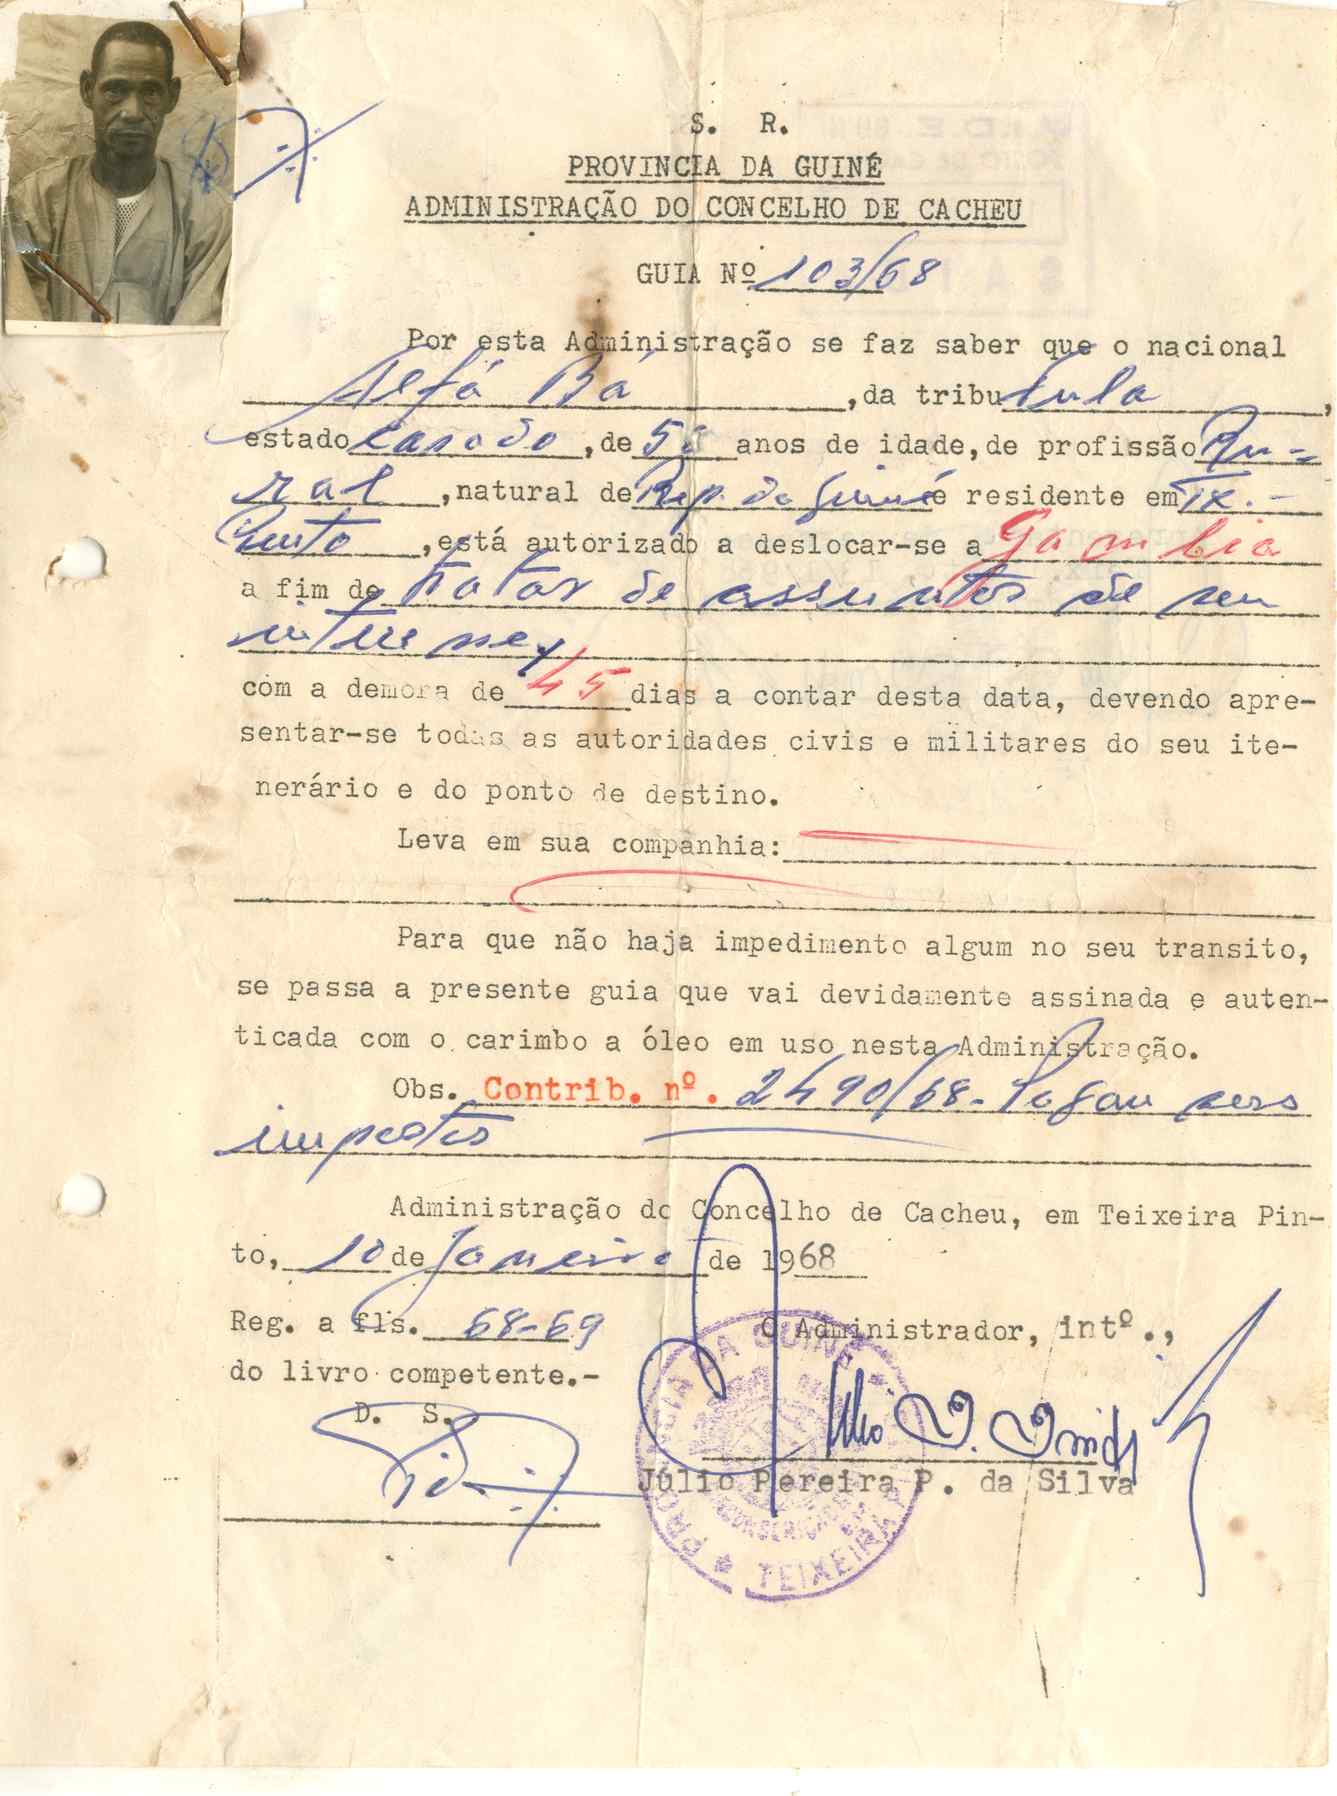 S. R.
PROVINCIA DA GUINÉ
ADMINISTRAÇÃO DO CONCELHO DE CACHEU
GUIA Nº 103/68
Por esta Administração se faz saber que o nacional
Alfá Bá, da tribu Fula,
estado casado, de 5 anos de idade, de profissão Ru-
ral, natural de Rep. da Guiné e residente em Tx.-
Pinto, está autorizado a deslocar-se a Gambia
a fim de tratar de assuntos de seu
interesse,
com a demora de 45 dias a contar desta data, devendo apre-
sentar-se todas as autoridades civis e militares do seu ite-
nerário e do ponto de destino.
Leva em sua companhia:
Para que não haja impedimento algum no seu transito,
se passa a presente guia que vai devidamente assinada e auten-
ticada com o carimbo a óleo em uso nesta Administração.
Obs. Contrib. nº. 2490/68- Pagou seus
impostos
Administração do Concelho de Cacheu, em Teixeira Pin-
to, 10 de Janeiro de 1968
Reg. a fls. 68-69 O Administrador, intº.,
do livro competente.-
D. S.
Júlio Pereira P. da Silva
PROVINCIA DA GUINÉ
TEIXEIRA P